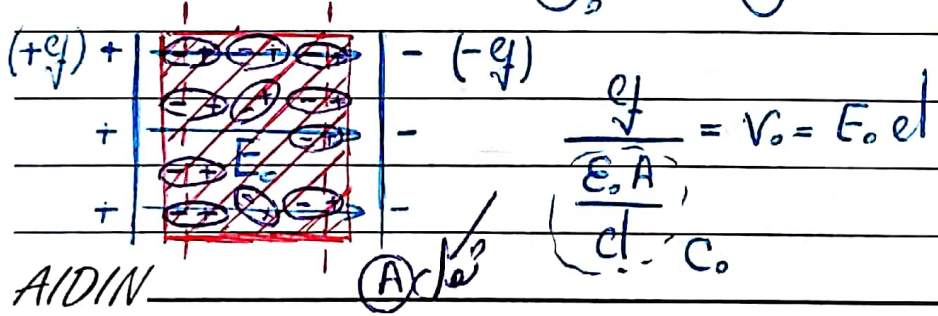 (+q) + - (-q)
+ -
+ -
E₀
q / (ε₀A / d) = V₀ = E₀ d
C₀
A
AIDIN